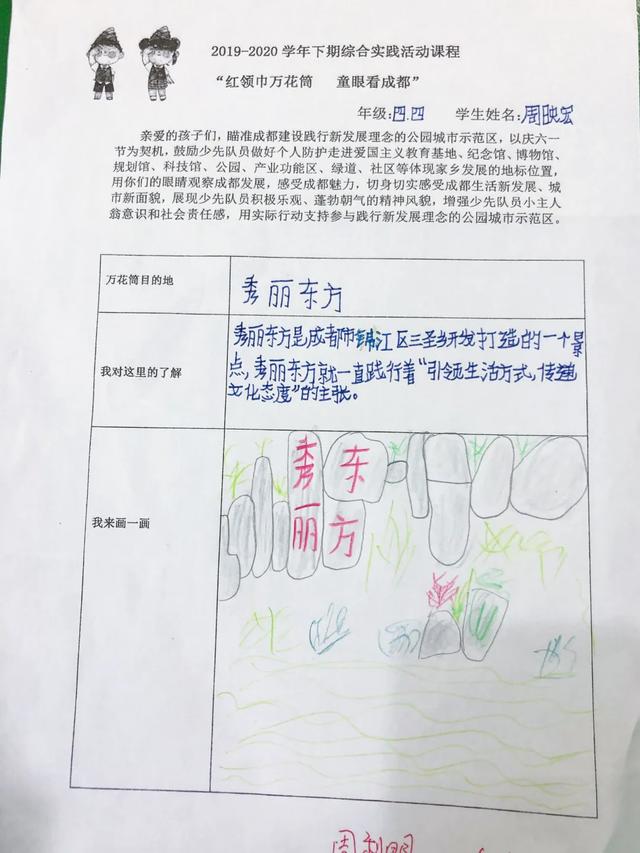 2019-2020 学年下期综合实践活动课程
“红领巾万花筒 童眼看成都”
年级:四.四 学生姓名:周映宏
亲爱的孩子们,瞄准成都建设践行新发展理念的公园城市示范区,以庆六一
节为契机,鼓励少先队员做好个人防护走进爱国主义教育基地、纪念馆、博物馆、
规划馆、科技馆、公园、产业功能区、绿道、社区等体现家乡发展的地标位置,
用你们的眼睛观察成都发展,感受成都魅力,切身切实感受成都生活新发展、城
市新面貌,展现少先队员积极乐观、蓬勃朝气的精神风貌,增强少先队员小主人
翁意识和社会责任感,用实际行动支持参与践行新发展理念的公园城市示范区。
万花筒目的地
秀丽东方
我对这里的了解
秀丽东方是成都市锦江区三圣乡开发打造的一个景
点,秀丽东方就一直践行着“引领生活方式,传递
文化态度”的主张。
我来画一画
秀丽
东方
周利明